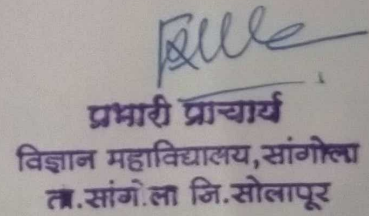 प्रभारी प्राचार्य
विज्ञान महाविद्यालय,सांगोला
ता.सांगोला जि.सोलापूर